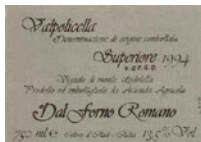 Valpolicella
Denominazione di origine controllata
Superiore 1994
Vigneto di monte Lodoletta
Prodotto ed imbottigliato da Azienda Agricola
Dal Forno Romano
750 ml. e Italia 13,5% Vol.